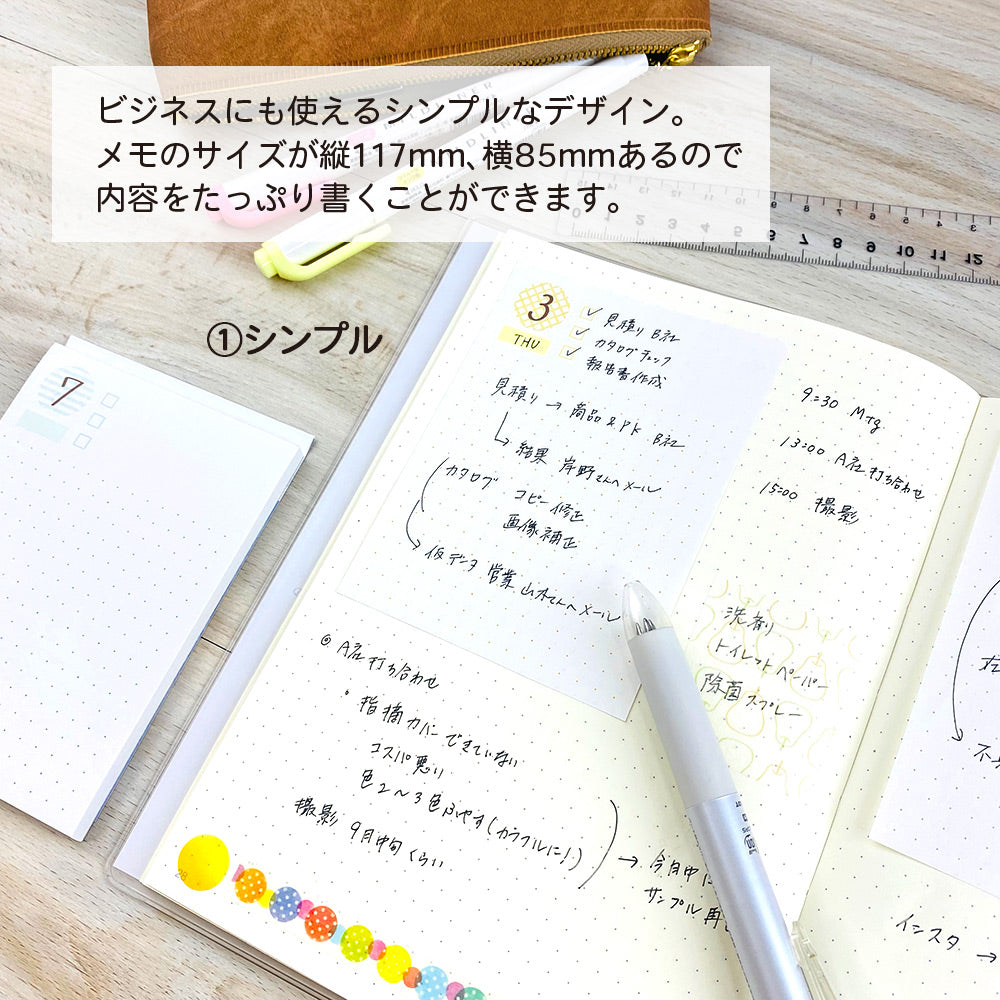 ビジネスにも使えるシンプルなデザイン。
メモのサイズが縦117mm、横85mmあるので
内容をたっぷり書くことができます。
①シンプル
7
3
THU
見積り B社
カタログチェック
報告書作成
見積り → 商品&PK B社
結果 岸野さんへメール
カタログ コピー修正
画像補正
仮データ 営業 山本さんへメール
9:30 Mtg
13:00 A社打ち合わせ
15:00 撮影
洗剤
トイレットペーパー
除菌スプレー
◎ A社打ち合わせ
・指摘カバーできていない
コスパ悪い
色2〜3色ふやす(カラフルに!)
撮影 9月中旬くらい
→ 今月中に
サンプル再
インスタ →
28
6 7 8 9 10 11 12